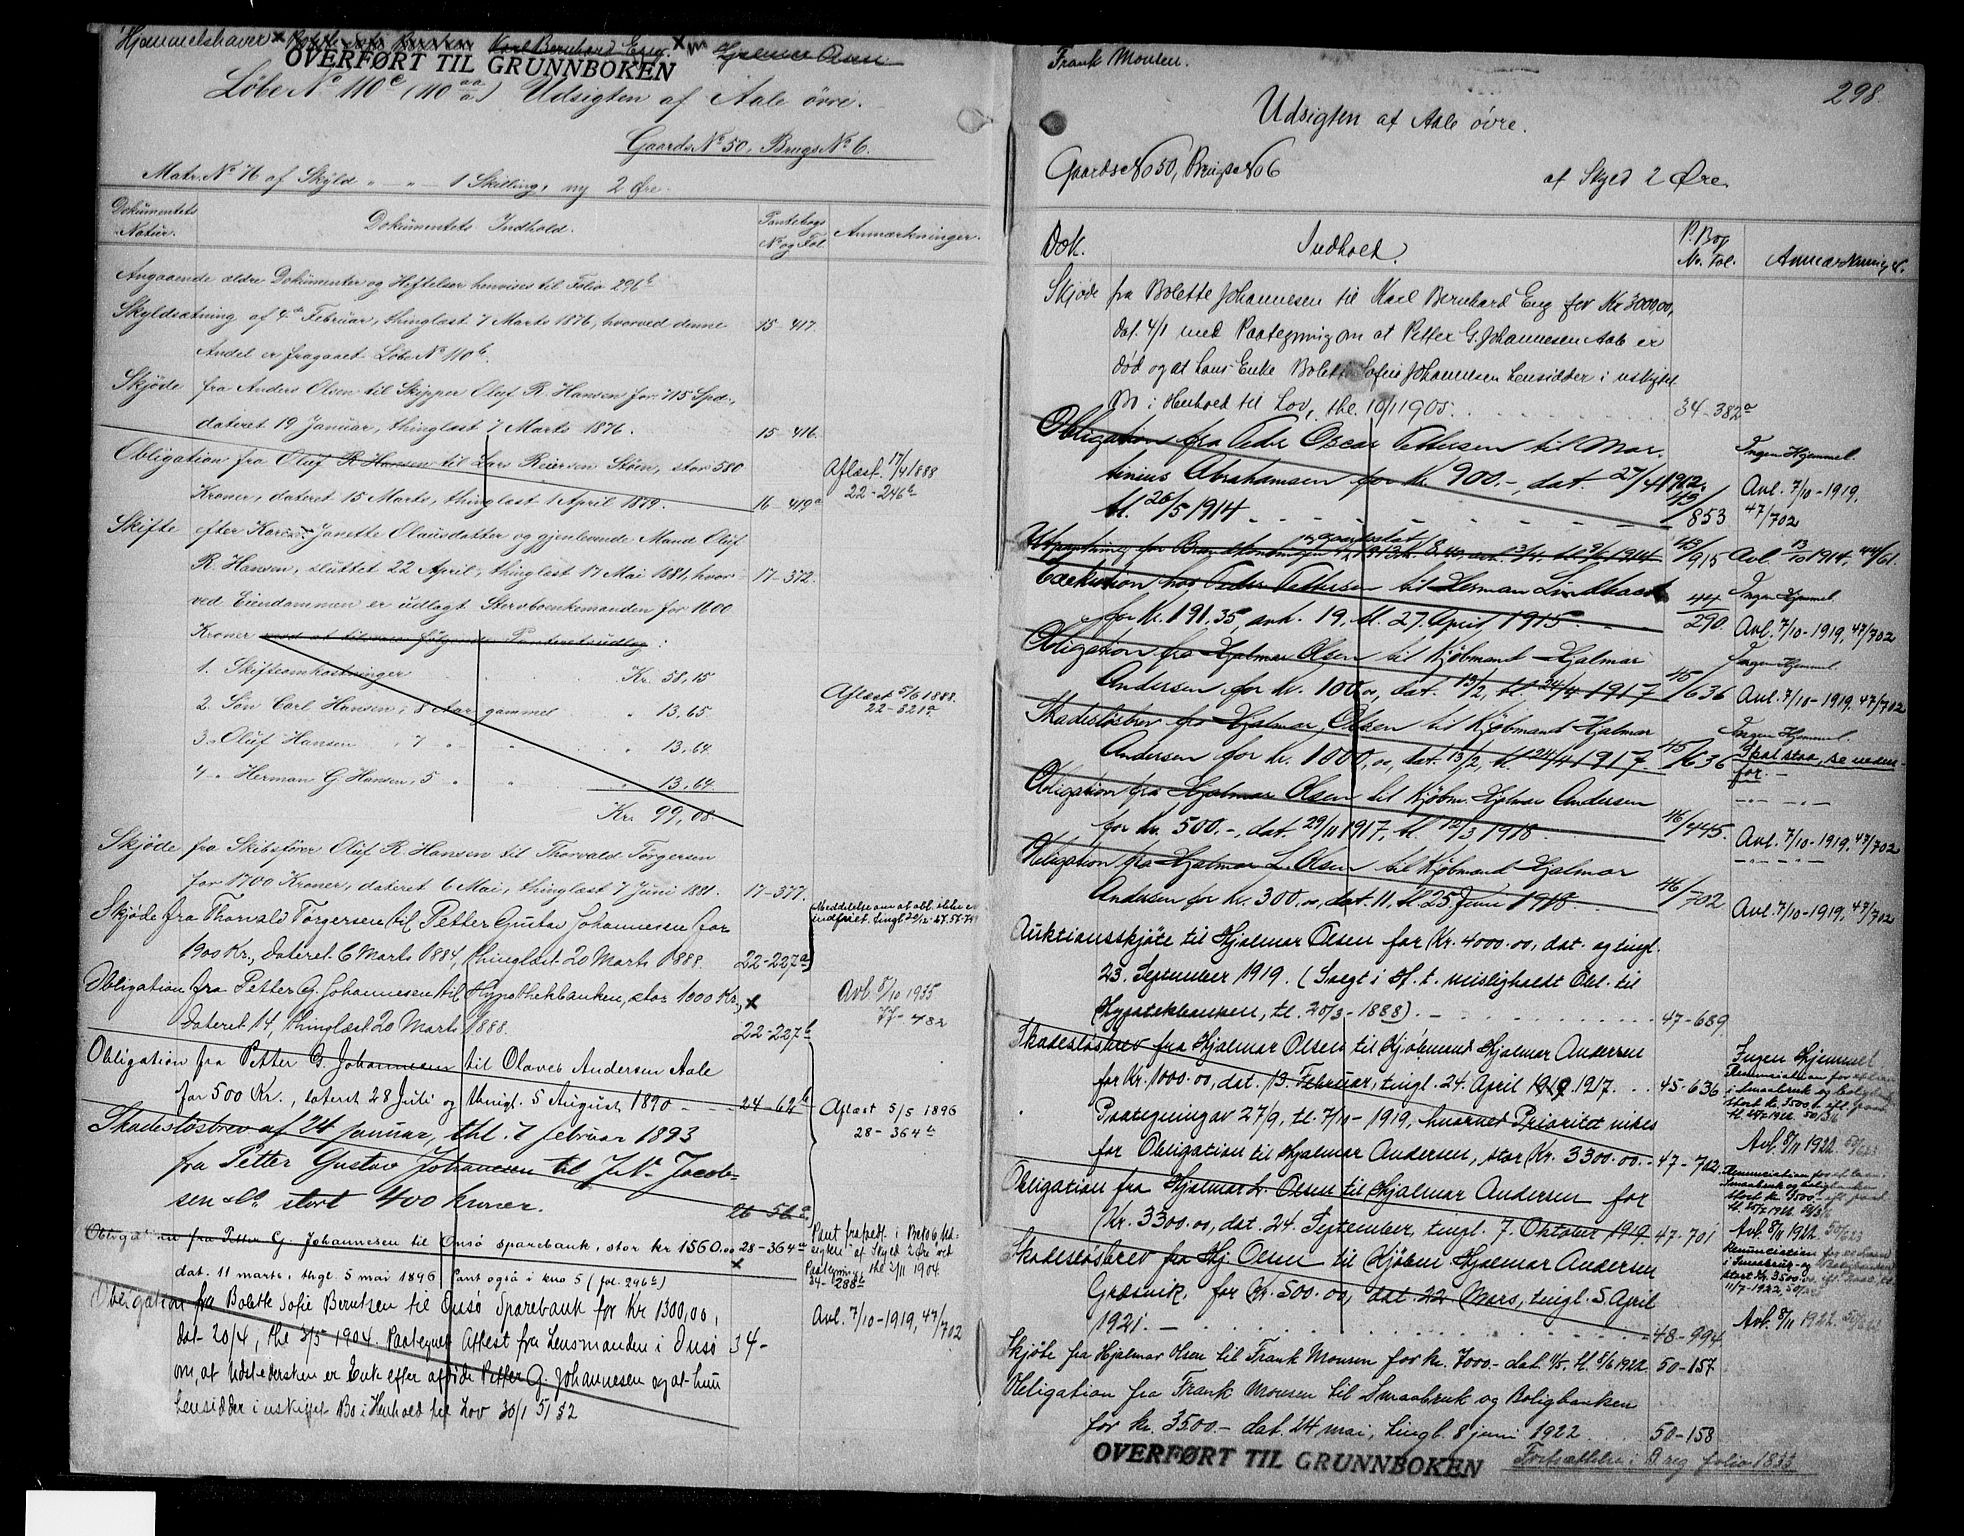 Hjemmelshaver x Karl Bernhard Eng. x Hjalmar Olsen
OVERFØRT TIL GRUNNBOKEN
Løbe No 110c (110 aa/a) Udsigten af Aale övre.
Gaards No 50, Brugs No 6.
Matr. No 76 af Skyld " - " - 1 Skilling, ny 2 Øre.
Dokumentets Natur.
Dokumentets Indhold.
Pantebogs No og Fol
Anmærkninger.
Angaaende ældre Dokumenter og Heftelser henvises til Folio 296b
Skyldsætning af 4de Februar, thinglæst 7 Marts 1876, hvorved denne 15-417.
Andel er fragaaet Löbe No 110b.
Skjöde fra Anders Olsen til Skipper Oluf R. Hansen for 715 Spd.,
dateret 19 Januar, thinglæst 7 Marts 1876. 15-416.
Obligation fra Oluf R Hansen til Lars Reiersen Støen, stor 580 Aflæst 17/4 1888
Kroner, dateret 15 Marts, thinglæst 1 April 1879. 16-419a 22-246b
Skifte efter Karen Janette Olausdatter og gjenlevende Mand Oluf
R. Hansen, sluttet 22 April, thinglæst 17 Mai 1881, hvor- 17-372.
ved Eiendommen er udlagt Stervboenkemanden for 1600
Kroner med at tilsvare følgende Panteretsudlæg:
1. Skifteomkostninger Kr. 58,15
2. Sön Carl Hansen, 8 Aar gammel " 13,65. Aflæst 5/6 1888.
3. " Oluf Hansen " 7 " " 13,64. 22-321a.
4. " Herman G. Hansen, 5 " " 13,64
Kr. 99,08.
Skjöde fra Skibsfører Oluf R. Hansen til Thorvald Torgersen
for 1700 Kroner, dateret 6 Mai, thinglæst 7 Juni 1881. 17-377.
Skjøde fra Thorvald Torgersen til Petter Gustav Johannessen for
1900 Kr., dateret 6 Marts 1884, thinglæst 20 Marts 1888. 22-227a
Meddelelse om at obl. ikke er
indfriet. tingl
Obligation fra Petter G. Johannesen til Hypothekbanken, stor 1000 Kr., x Avl. 5/10 1935
dateret 14, thinglæst 20 Marts 1888. 22-227b 77-482
Obligation fra Petter G. Johannesen til Olaves Andersen Aale
for 500 Kr., dateret 28 Juli og thingl. 5 August 1890 - - 24-62b Aflæst 5/5 1896
28-364b
Skadesløsbrev af 24 januar, thl. 7 februar 1893
fra Petter Gustav Johannesen til J. N. Jacob-
sen & Co. stort 400 kroner. 26-56a.
Obligation fra Petter G. Johannesen til Onsö sparebank, stor kr 1560.00 28-364a
x
dat. 11 marts, thgl. 5 mai 1896. Pant også i bno 5 (fol. 296b)
Pant frafaldt i Bno 6 Ud-
sigten af Skyld 2 Øre ved
Paategning, thl 2/11 1904
34-288b
Obligation fra Bolette Sofie Berntsen til Onsø Sparebank for Kr 1300,00,
dat. 20/4, thl 3/5 1904. Paategnet Attest fra Lensmanden i Onsø 34-
Avl. 7/10-1919, 47/702
om, at Udstedersken er Enke efter afdøde Petter G. Johannesen og at hun
hensidder i uskiftet Bo i Henhold til Lov 30/7 51 § 2
Frank Monsen. 298.
Udsigten af Aale övre.
Gaards No 50, Brugs No 6 af Skyld 2 Øre.
Dok. Indhold. P. Bog No. Fol. Anmærkninger.
Skjøde fra Bolette Johannesen til Karl Bernhard Eng for Kr 3000,00,
dat. 4/1 med Paategning om at Petter G. Johannesen Aale er
død og at hans Enke Bolette Sofie Johannesen hensidder i uskiftet
Bo i Henhold til Lov, thl. 10/1 1905. 34-382a
Obligation fra Peder Oscar Pettersen til Mar- Ingen Hjemmel.
tinius Abrahamsen for Kr. 900.-, dat. 27/4 1912, Avl. 7/10-1919.
tl. 26/5 1914 43/853 47/702
43/915 Avl. 13/10 1914. 44/61.
Exekution hos Peder Pettersen til Herman Lindbaack Ingen Hjemmel
for Kr. 191.35, avh. 19, tl. 27 April 1915. 44/290. Avl. 7/10-1919. 47/702
Obligation fra Hjalmar Olsen til Kjøbmand Hjalmar Ingen Hjemmel.
Andersen for kr. 100.00, dat. 13/2, tl. 24/4 1917 45/636 Avl. 7/10-1919. 47/702
Skadesløsbrev fra Hjalmar Olsen til Kjøbmand Hjalmar Ingen Hjemmel.
Andersen for kr. 1000.00, dat. 13/2, tl. 24/4 1917. 45/636 Skal staa, se neden-
for. -
Obligation fra Hjalmar Olsen til Kjøbm. Hjalmar Andersen
for kr. 500.-, dat. 29/11 1917, tl. 12/3 1918. 46/445. Avl. 7/10-1919. 47/702
Obligation fra Hjalmar L. Olsen til Kjøbmand Hjalmar
Andersen for kr. 300.00, dat. 11, tl. 25 Juni 1918 46/702 Avl. 7/10-1919. 47/702
Auktionsskjøte til Hjalmar Olsen for Kr. 4000.00, dat. og tingl.
23. September 1919. (Solgt i H. t. misligholdt Obl. til
Hypotekbanken, tl. 20/3-1888). 47-689
Skadesløsbrev fra Hjalmar Olsen til Kjøbmand Hjalmar Andersen Ingen Hjemmel
for Kr. 1000.00, dat. 13. Februar, tingl. 24. April 1919 1917. 45-636
Paategning av 27/9, tl. 7/10-1919, hvorved Prioritet vikes
for Obligation til Hjalmar Andersen, stor Kr. 3300.00. - 47-702. Avl. 8/11 1922. 50/623
Obligation fra Hjalmar L. Olsen til Hjalmar Andersen for
Kr. 3300.00, dat. 24. September, tingl. 7. Oktober 1919. 47-701 Avl. 8/11 1922. 50/623
Skadesløsbrev fra Hj. Olsen til Kjøbm Hjalmar Andersen
Græsvik, for Kr. 500.00, dat 22 Mars, tingl. 5. April
1921. 48-994 Avl. 8/11 1922. 50/623
Skjøte fra Hjalmar Olsen til Frank Monsen for kr. 7000.- dat. 1/5. tl. 8/6 1922. 50-157
Obligation fra Frank Monsen til Smaabruk og Boligbanken
for kr. 3500.- dat. 24 mai, tingl. 8 juni 1922 50-158
OVERFØRT TIL GRUNNBOKEN Fortsættelse: B reg folio 183